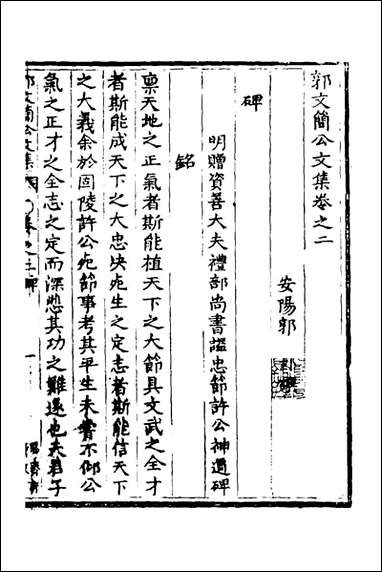 郭文簡公文集卷之二
安陽郭
碑
明贈資善大夫禮部尚書謚忠節許公神道碑
銘
稟天地之正氣者斯能植天下之大節具文武之全才
者斯能成天下之大忠决死生之定志者斯能信天下
之大義余於固陵許公死節事考其平生未嘗不仰公
氣之正才之全志之定而深悲其功之難遂也夫君子
郭文簡公文集 卷之二 碑 一